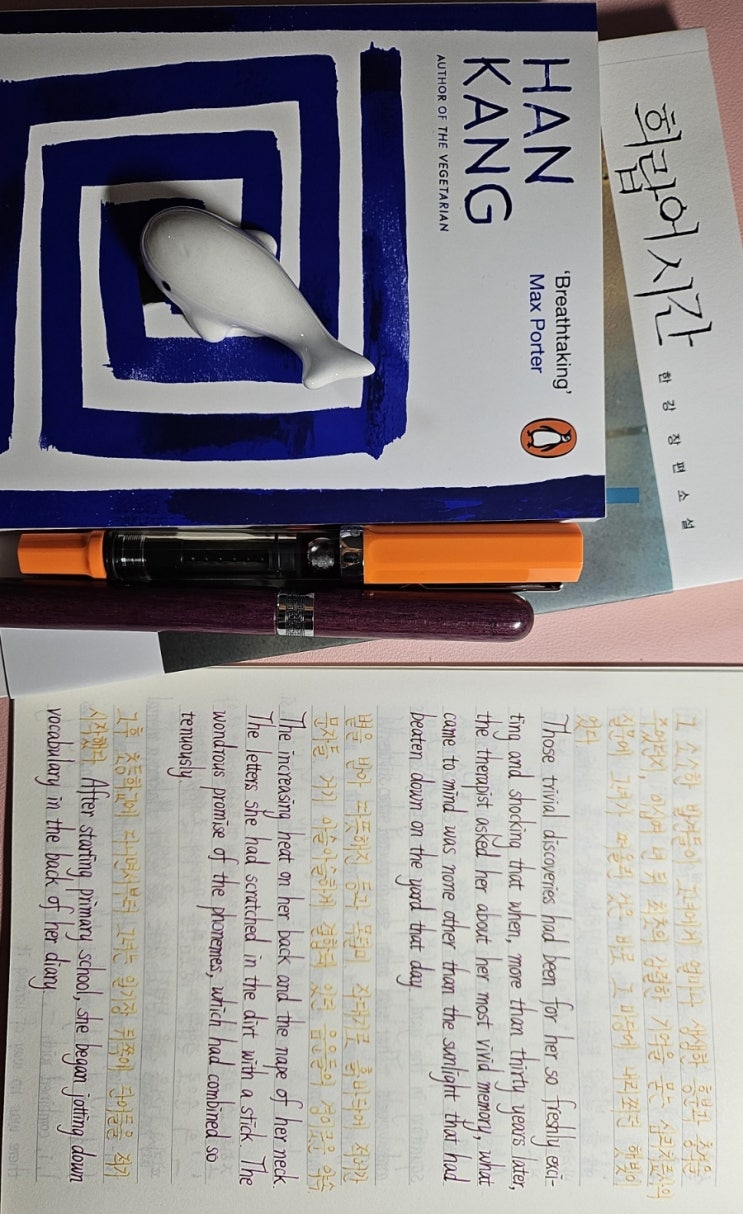 HAN
KANG
AUTHOR OF THE VEGETARIAN
'Breathtaking'
Max Porter
희랍어 시간
한강 장편소설
그 소소한 발견들이 그녀에게 얼마나 생생한 흥분과 충격을
주었던지, 이십여 년 뒤 최초의 강렬한 기억을 묻는 심리치료사의
질문에 그녀가 떠올린 것은 바로 그 마당에 내리쬐던 햇빛이
었다.
Those trivial discoveries had been for her so freshly exci-
ting and shocking that when, more than thirty years later,
the therapist asked her about her most vivid memory, what
came to mind was none other than the sunlight that had
beaten down on the yard that day.
볕을 받아 따뜻해진 등과 목덜미. 작대기로 흙바닥에 적어간
문자들. 거기 아슬아슬하게 결합돼 있던 음운들의 경이로운 약속.
The increasing heat on her back and the nape of her neck.
The letters she had scratched in the dirt with a stick. The
wondrous promise of the phonemes, which had combined so
tenuously.
그후 초등학교에 다니면서부터 그녀는 일기장 뒤쪽에 단어들을 적기
시작했다. After starting primary school, she began jotting down
vocabulary in the back of her diary.